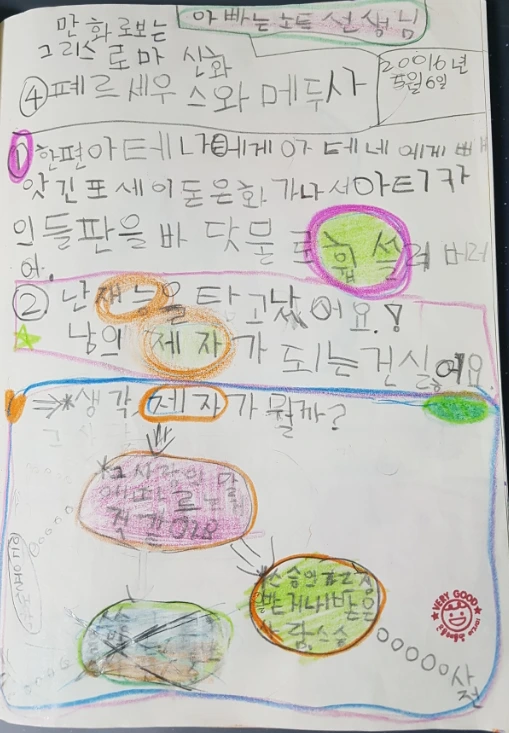 아빠는 노트 선생님
만화로보는
그리스 로마 신화
④페르세우스와 메두사
20016년
5월6일
① 한편아테나에게 아테네에게 빼
앗긴포세이돈은화가나서아티카
의들판을바닷물로휩쓸려버려
어.
② 난재능을타고났어요.!
남의 제자가 되는건싫어요.
⇒*생각,제자가 뭘까?
*그사람의
스승의가르침
받거나받은
사람.스승
VERY GOOD
사전